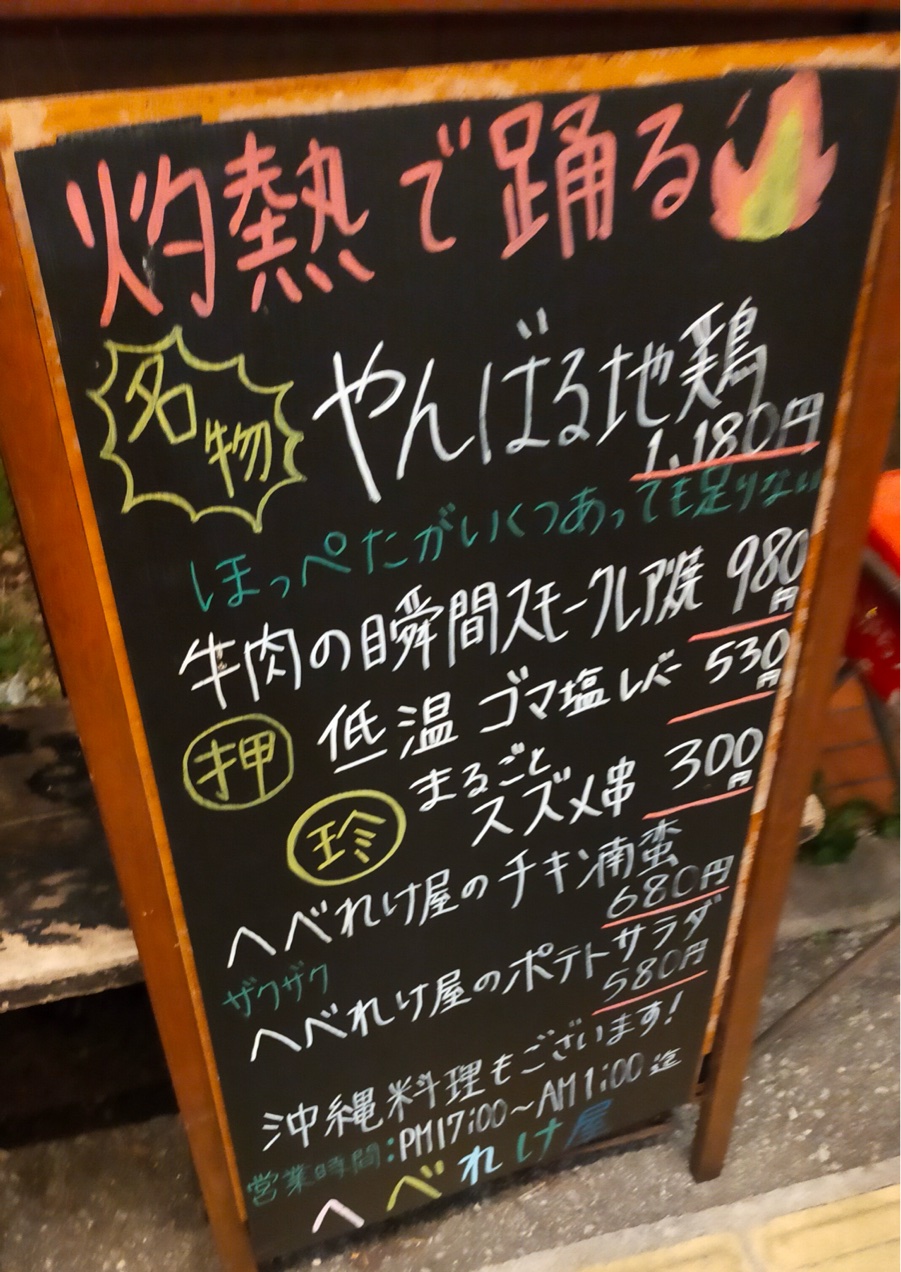 灼熱で踊る
名物 やんばる地鶏
1,180円
ほっぺたがいくつあっても足りない
牛肉の瞬間スモークレア焼 980円
押 低温 ゴマ塩レバー 530円
珍 まるごとスズメ串 300円
へべれけ屋のチキン南蛮
680円
ザクザク
へべれけ屋のポテトサラダ
580円
沖縄料理もございます!
営業時間:PM17:00~AM1:00迄
へべれけ屋